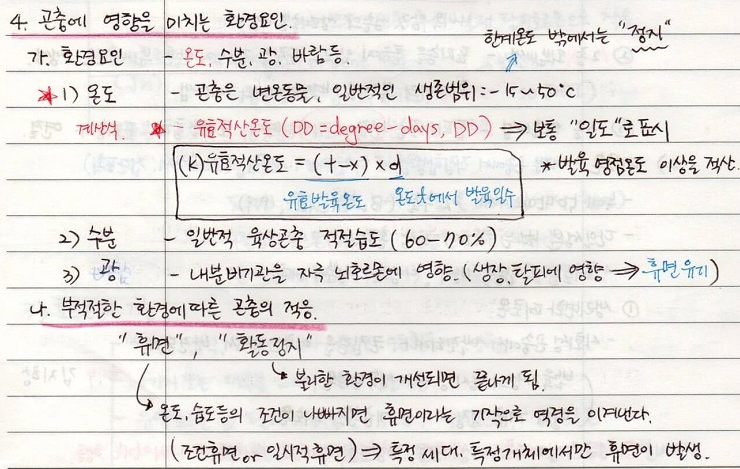 4. 곤충에 영향을 미치는 환경요인.
한계온도 밖에서는 "정지"
가. 환경요인 온도, 수분, 광, 바람 등.
1) 온도 - 곤충은 변온동물, 일반적인 생존범위:-15~50℃
계산식 - 유효적산온도 (DD=degree-days, DD) ⇒ 보통 "일도"로 표시
(K)유효적산온도 = (t-x) × d * 발육 영점온도 이상을 적산.
유효발육온도 온도t에서 발육일수
2) 수분 - 일반적 육상곤충 적절습도 (60-70%)
3) 광 - 내분비기관을 자극 뇌호르몬에 영향. (생장, 탈피에 영향 ⇒ 휴면유기)
나. 부적적한 환경에 따른 곤충의 적응.
"휴면", "활동정지"
불리한 환경이 개선되면 끝나게 됨.
온도, 습도등의 조건이 나빠지면 휴면이라는 기작으로 역경을 이겨낸다.
(조건휴면 or 일시적휴면) ⇒ 특정 세대, 특정개체에서만 휴면이 발생.